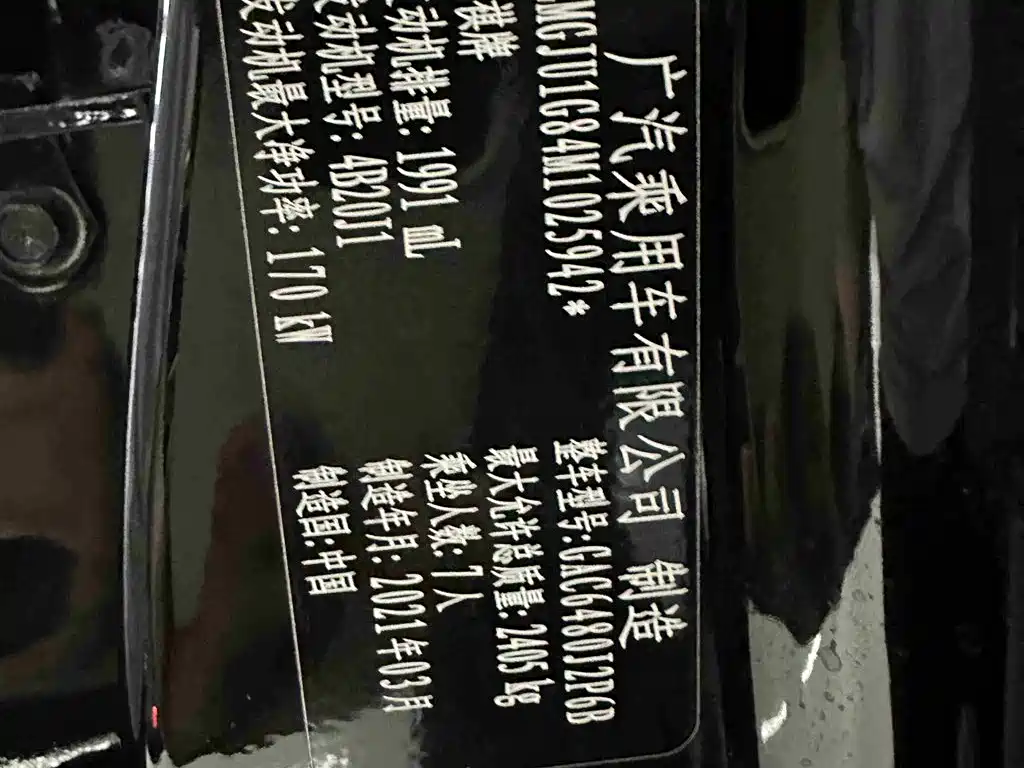 广汽乘用车有限公司 制造
MGJU1G84M1025942*
整车型号:GAC6480J2P6B
祺牌
最大允许总质量:2405 kg
动机排量:1991 mL
乘坐人数:7人
发动机型号:4B20J1
制造年月:2021年03月
发动机最大净功率:170 kW
制造国:中国